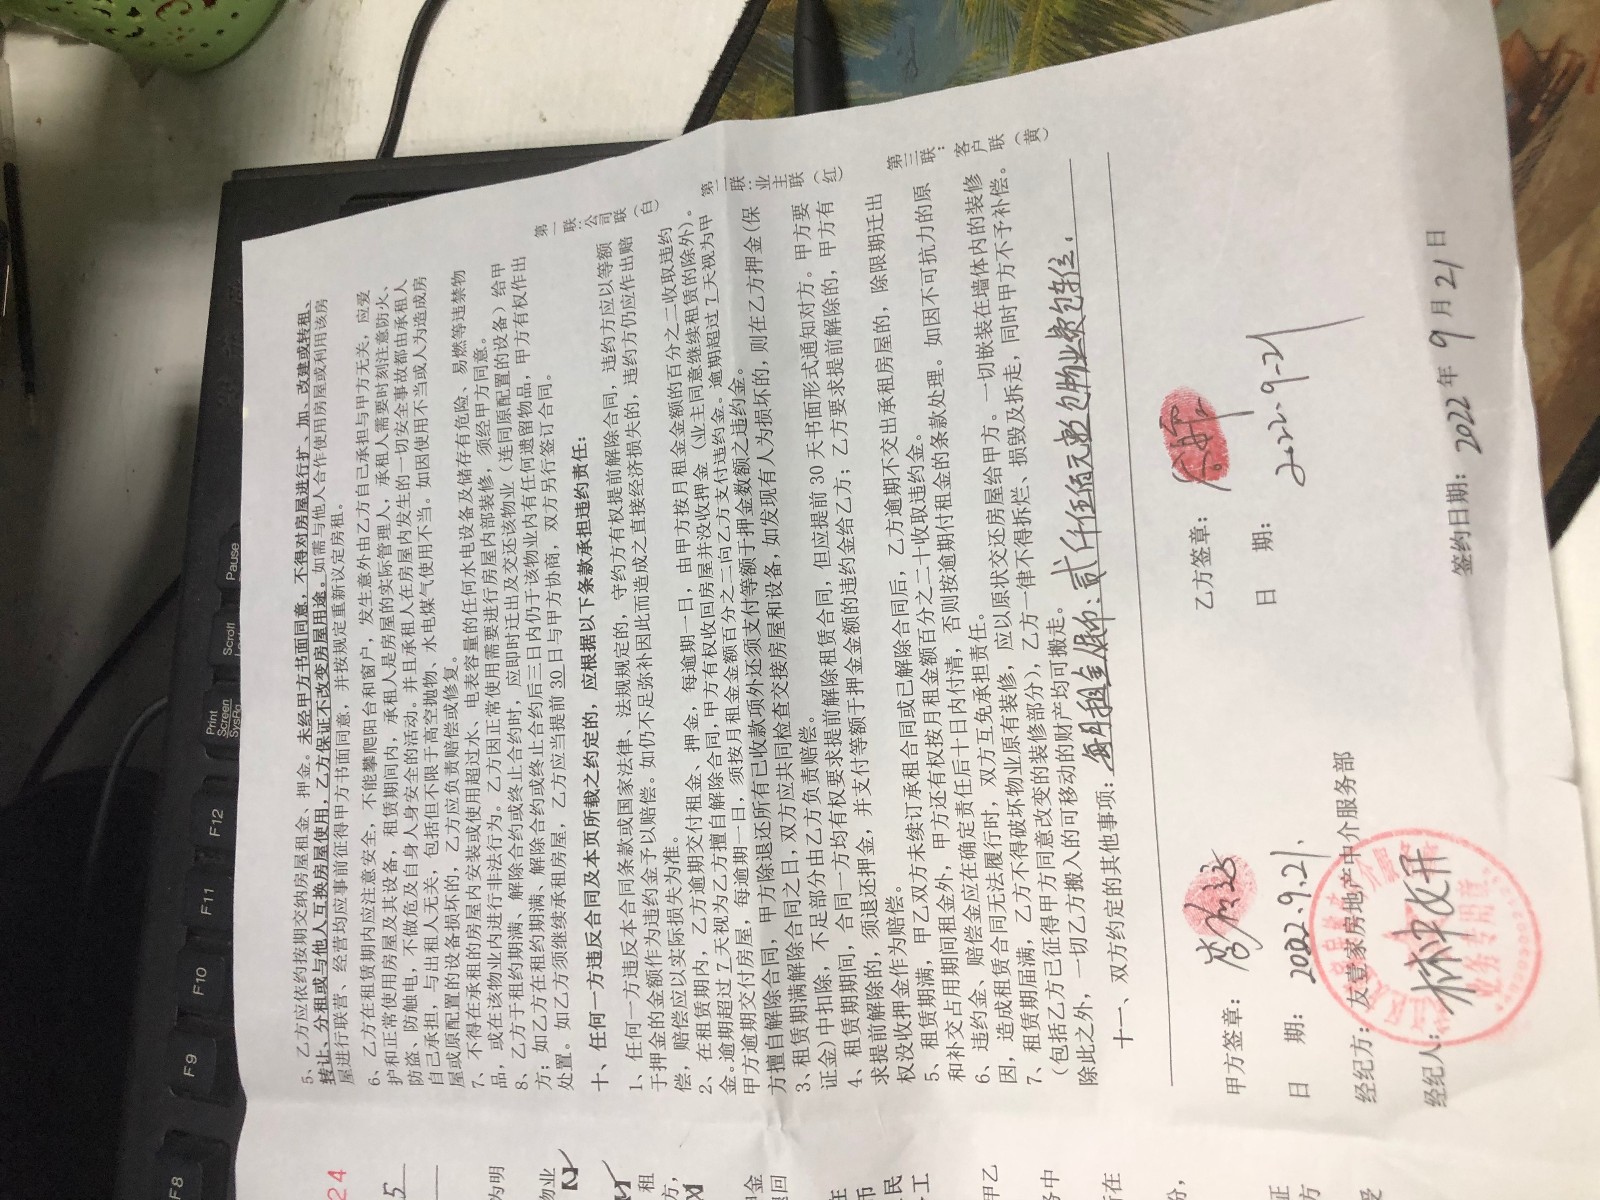 5、乙方应依约按期交纳房屋租金、押金。未经甲方书面同意，不得对房屋进行扩、加、改建或转租、
转让、分租或与他人互换房屋使用，乙方保证不改变房屋用途。如需与他人合作使用房屋或利用该房
屋进行联营、经营均应事前征得甲方书面同意，并按规定重新议定房租。
6、乙方在租赁期内应注意安全，不能攀爬阳台和窗户，发生意外由乙方自己承担与甲方无关，应爱
护和正常使用房屋及其设备，租赁期间内，承租人是房屋的实际管理人，承租人需要时刻注意防火、
防盗、防触电，不做危及自身人身安全的活动。并且承租人在房屋内发生的一切安全事故都由承租人
自己承担，与出租人无关，包括但不限于高空抛物、水电煤气使用不当。如因使用不当或人为造成房
屋或原配置的设备损坏的，乙方应负责赔偿或修复。
7、不得在承租的房屋内安装或使用超过水、电表容量的任何水电设备及储存有危险、易燃等违禁物
品，或在该物业内进行非法行为。乙方因正常使用需要进行房屋内部装修，须经甲方同意。
8、乙方于租约期满、解除合约或终止合约时，应即时迁出及交还该物业（连同原配置的设备）给甲
方；如乙方在租约期满、解除合约或终止合约后三日内仍于该物业内有任何遗留物品，甲方有权作出
处置。如乙方须继续承租房屋，乙方应当提前30日与甲方协商，双方另行签订合同。
十、任何一方违反合同及本页所载之约定的，应根据以下条款承担违约责任：
1、任何一方违反本合同条款或国家法律、法规规定的，守约方有权提前解除合同，违约方应以等额
于押金的金额作为违约金予以赔偿。如仍不足弥补因此而造成之直接经济损失的，违约方仍应作出赔
偿，赔偿应以实际损失为准。
2、在租赁期内，乙方逾期交付租金、押金，每逾期一日，由甲方按月租金金额的百分之二收取违约
金。逾期超过7天视为乙方擅自解除合同，甲方有权收回房屋并没收押金（业主同意继续租赁的除外）。
甲方逾期交付房屋，每逾期一日，须按月租金金额百分之二向乙方支付违约金。逾期超过7天视为甲
方擅自解除合同，甲方除退还所有已收款项外还须支付等额于押金数额之违约金。
3、租赁期满解除合同之日，双方应共同检查交接房屋和设备，如发现有人为损坏的，则在乙方押金（保
证金）中扣除，不足部分由乙方负责赔偿。
4、租赁期期间，合同一方均有权要求提前解除租赁合同，但应提前30天书面形式通知对方。甲方要
求提前解除的，须退还押金，并支付等额于押金金额的违约金给乙方；乙方要求提前解除的，甲方有
权没收押金作为赔偿。
5、租赁期满，甲乙双方未续订承租合同或已解除合同后，乙方逾期不交出承租房屋的，除限期迁出
和补交占用期间租金外，甲方还有权按月租金额百分之二十收取违约金。
6、违约金、赔偿金应在确定责任后十日内付清，否则按逾期付租金的条款处理。如因不可抗力的原
因，造成租赁合同无法履行时，双方互免承担责任。
7、租赁期届满，乙方不得破坏物业原有装修，应以原状交还房屋给甲方。一切嵌装在墙体内的装修
（包括乙方已征得甲方同意改变的装修部分），乙方一律不得拆烂、损毁及拆走，同时甲方不予补偿。
除此之外，一切乙方搬入的可移动的财产均可搬走。
十一、双方约定的其他事项：每月租金人民币：贰仟伍佰元整包物业费包车位.
甲方签章：
乙方签章：
日 期：2022.9.21.
日 期：2022.9-21
经纪方：友壹家房地产中介服务部
经纪人：林坤妍
签约日期：2022年9月21日
第一联：公司联（白）
第二联：业主联（红）
第三联：客户联（黄）
业务专用章
24
5
为明
物业
租
方，
金
退回
在
币
民
工
甲乙
务中
所在
份，
正
方
受
Print
Screen
SysRq
Scroll
Pause
F8
F9
F10
F11
F12